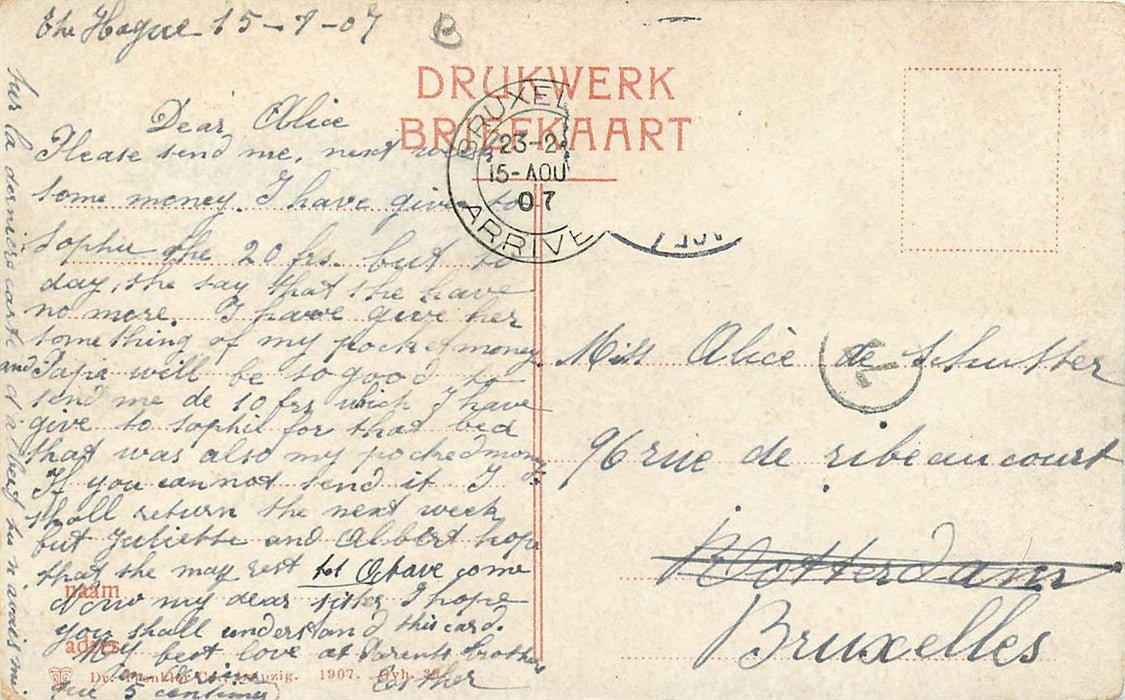 The Hague 15-7-07
B
DRUKWERK
BRIEFKAART
BRUXEL
23-2
15-AOU
07
ARRIVE
Dear Alice
Please send me, next week
some money. I have given to
Sophie the 20 frs. but to
day, she say that she have
no more. I have give her
something of my pocket money
and Papa will be so good to
send me de 10 frs which I have
give to Sophie for that bed
that was also my pocked money.
If you cannot send it I
shall return the next week
but Juliette and Albert hope
that she may rest tot Octave come
Now my dear sister I hope
you shall understand this card.
My best love at Parents brothers
Esther
sur la dernière carte
que 5 centimes
Miss Alice de Schutter
96 rue de ribeaucourt
Rotterdam
Bruxelles
naam
adres
Dr. Trenkler Co., Leipzig. 1907.